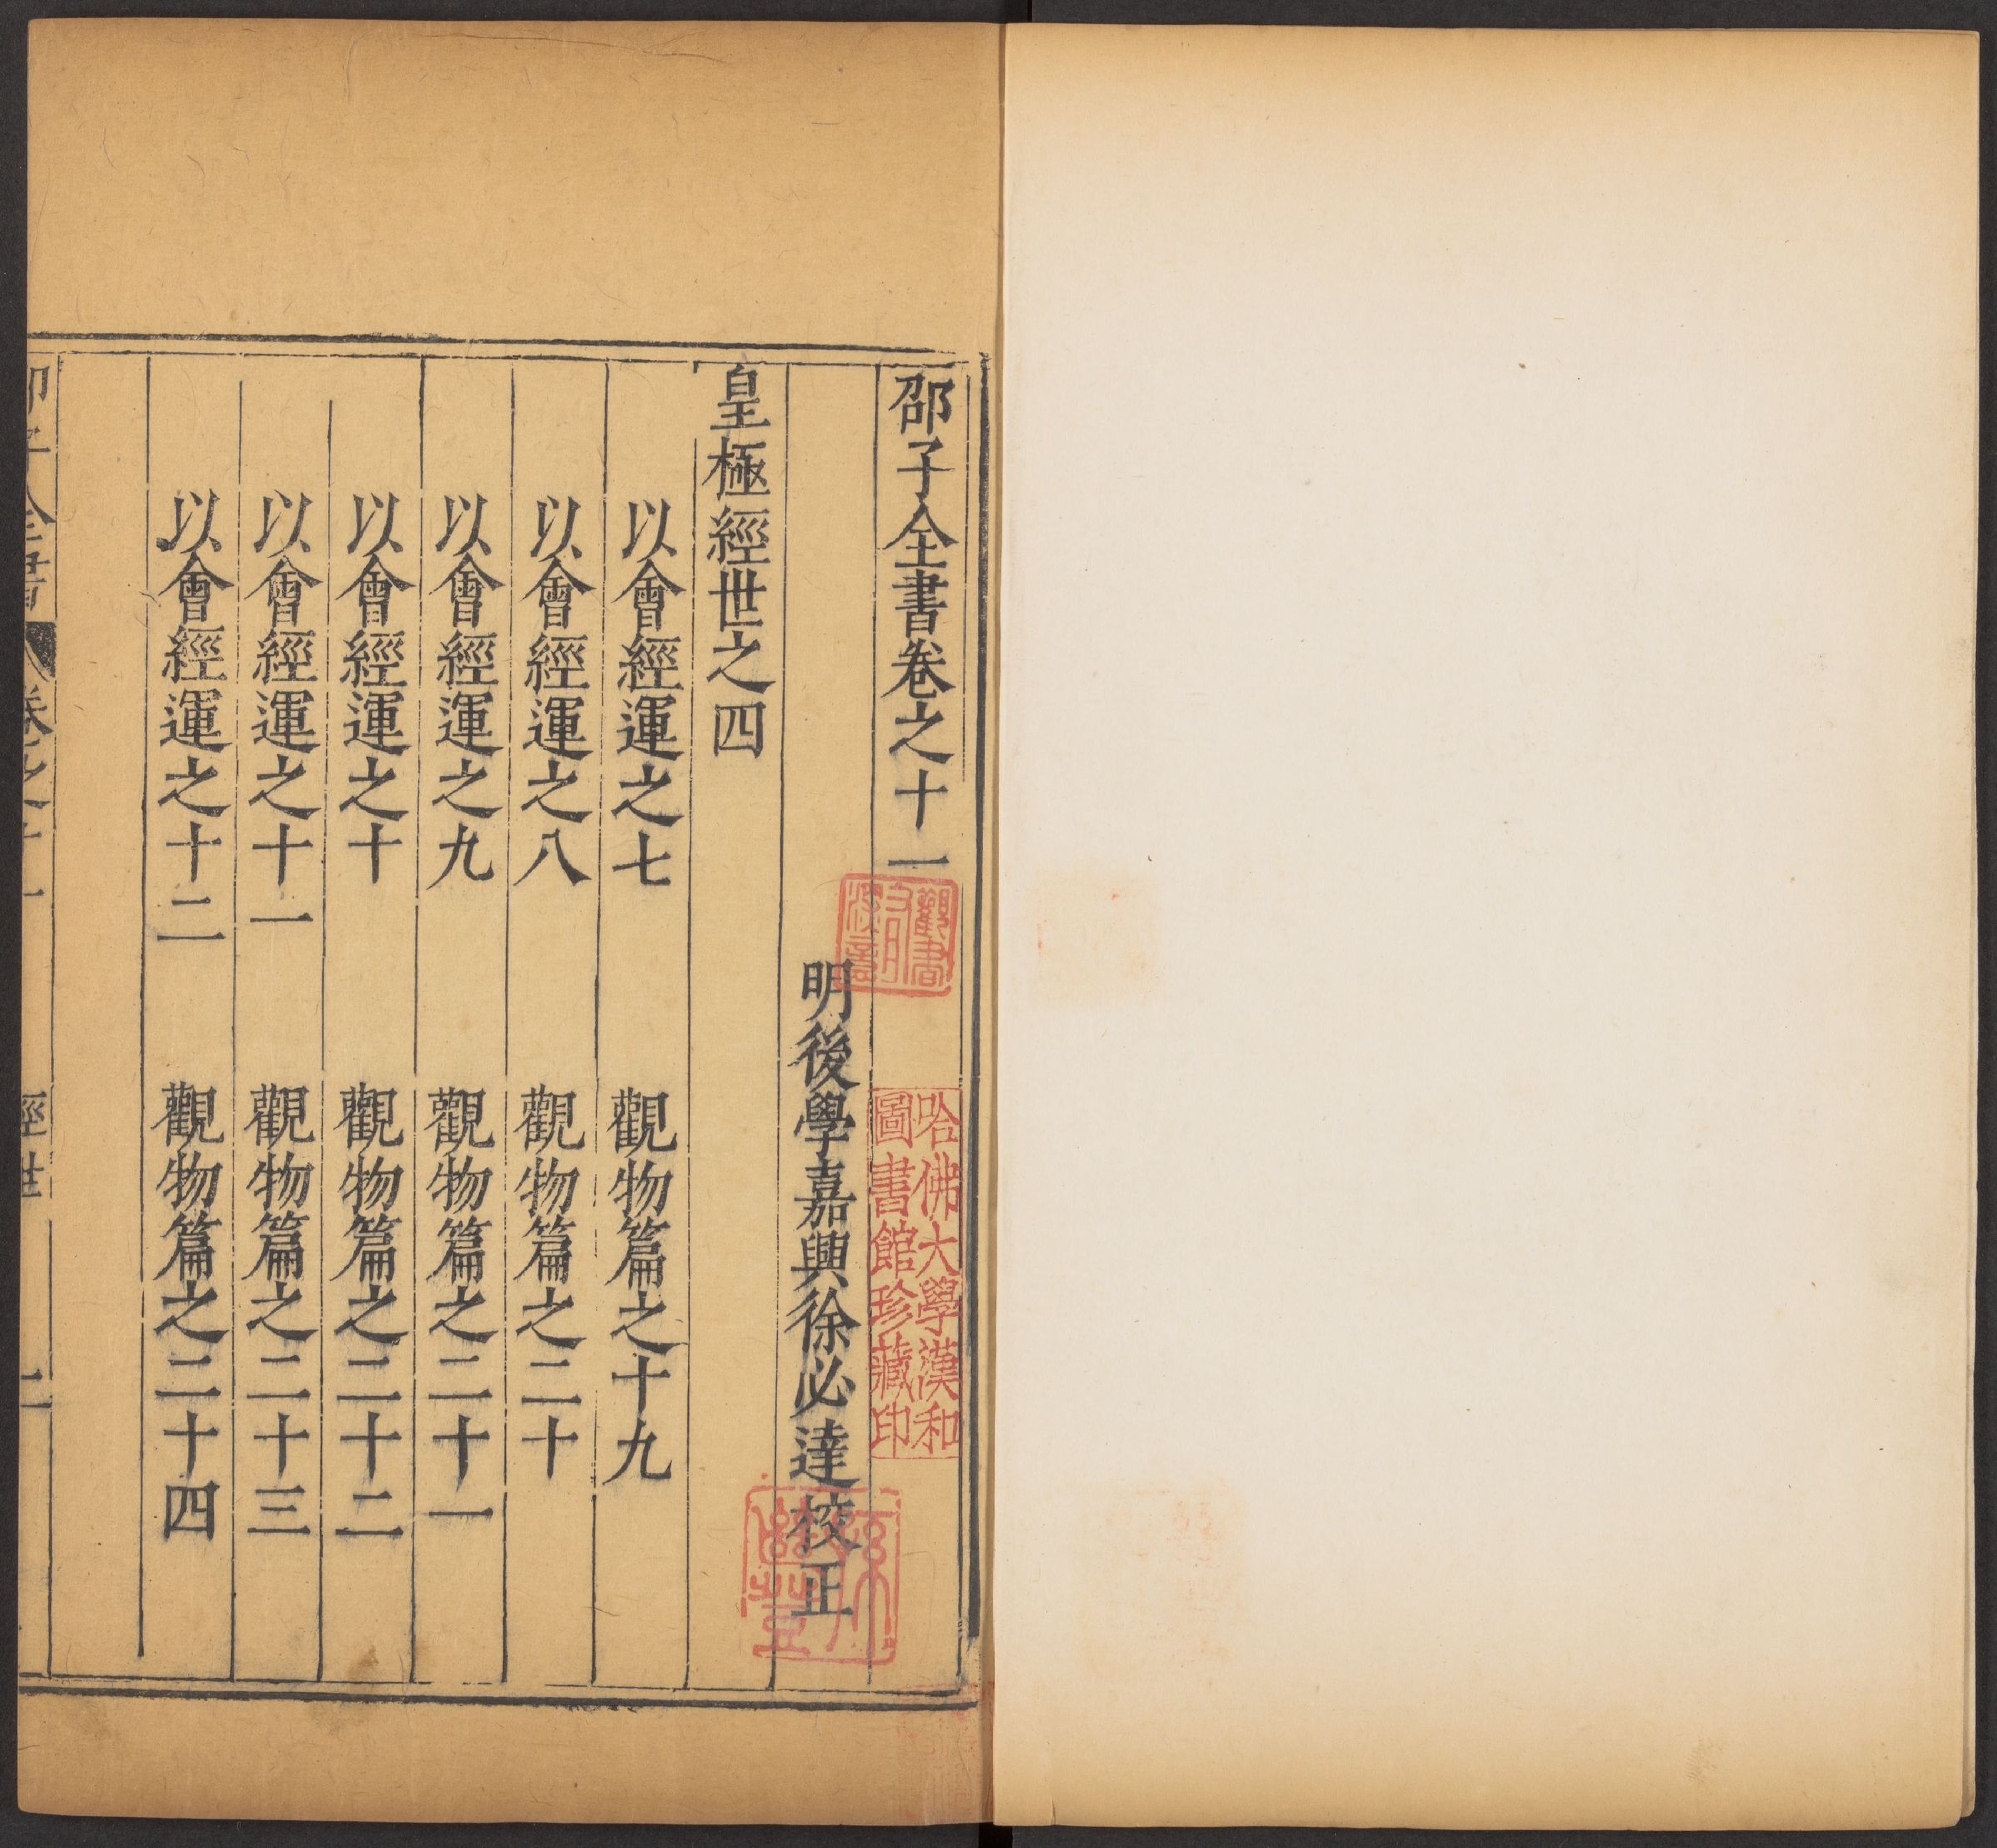 邵子全書卷之十一
明後學嘉興徐必達校正
皇極經世之四
以會經運之七 觀物篇之十九
以會經運之八 觀物篇之二十
以會經運之九 觀物篇之二十一
以會經運之十 觀物篇之二十二
以會經運之十一 觀物篇之二十三
以會經運之十二 觀物篇之二十四
哈佛大學漢和
圖書館珍藏印